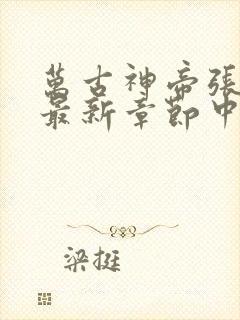 萬古神帝張
最新章節中
梁挺